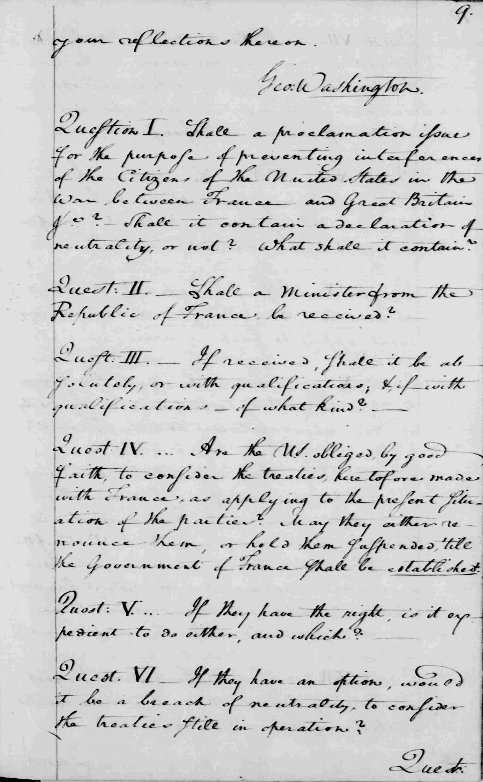 9.
your reflections thereon.
Geo: Washington.
Question I. Shall a proclamation issue
for the purpose of preventing interferences
of the Citizens of the United States in the
war between France and Great Britain
&c? Shall it contain a declaration of
neutrality, or not? What shall it contain?
Quest: II. — Shall a Minister from the
Republic of France be received?
Quest. III. — If received, shall it be ab-
solutely, or with qualifications; & if with
qualifications — of what kind? —
Quest IV. ... Are the US. obliged, by good
faith, to consider the treaties, heretofore made
with France, as applying to the present situ-
ation of the parties? May they either re-
nounce them, or hold them suspended, 'till
the Government of France shall be established.
Quest: V. ... If they have the right, is it ex-
pedient to do either, and which? —
Quest. VI — If they have an option, would
it be a breach of neutrality, to consider
the treaties still in operation?
Quest: